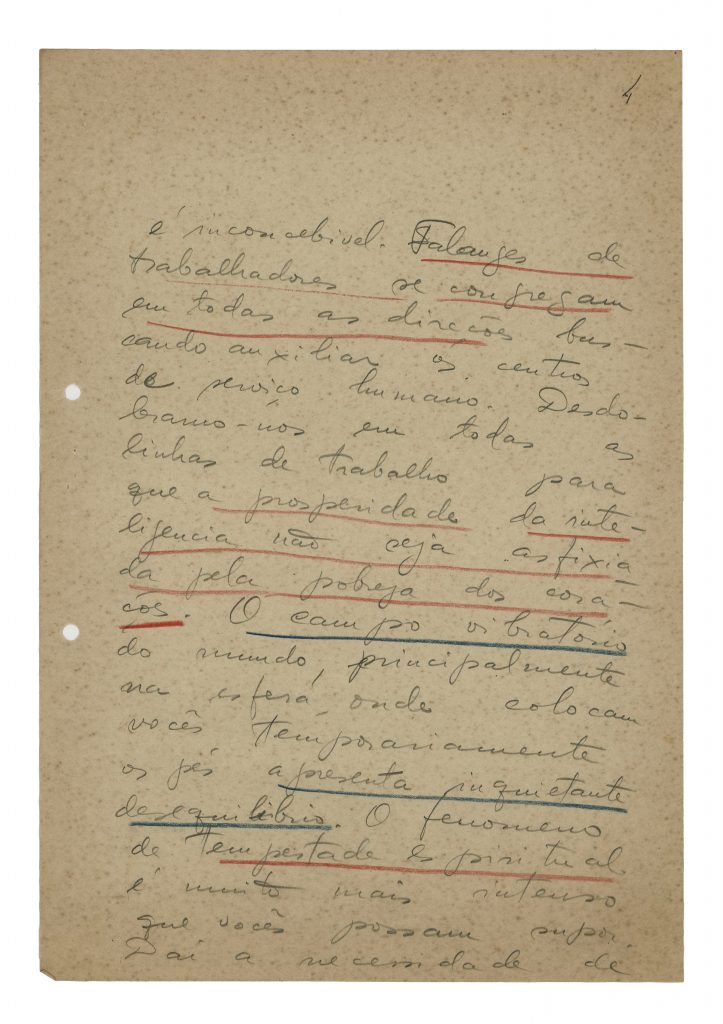 4
é inconcebivel. Falanges de
trabalhadores se congregam
em todas as direcões bus-
cando auxiliar os centros
de serviço humano. Desdo-
bramo-nos em todas as
linhas de trabalho para
que a prosperidade da inte-
ligencia não seja asfixia
da pela pobreza dos cora-
ções. O campo vibratório
do mundo, principalmente
na esfera, onde colocam
vocês temporariamente
os pés apresenta inquietante
desequilibrio. O fenomeno
de tempestade espiritual
é muito mais intenso
que vocês possam supor.
Daí a necessidade de